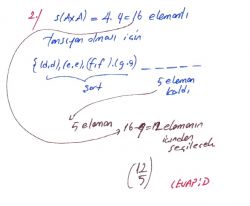 2-) s(AxA) = 4.4 = 16 elemanlı
Yansıyan olması için
{(d,d), (e,e), (f,f), (g,g) _ _ _ _ _
şart
5 eleman
kaldı
5 eleman 16-4=12 elemanın
içinden
seçilecek
(12
5)
CEVAP: D